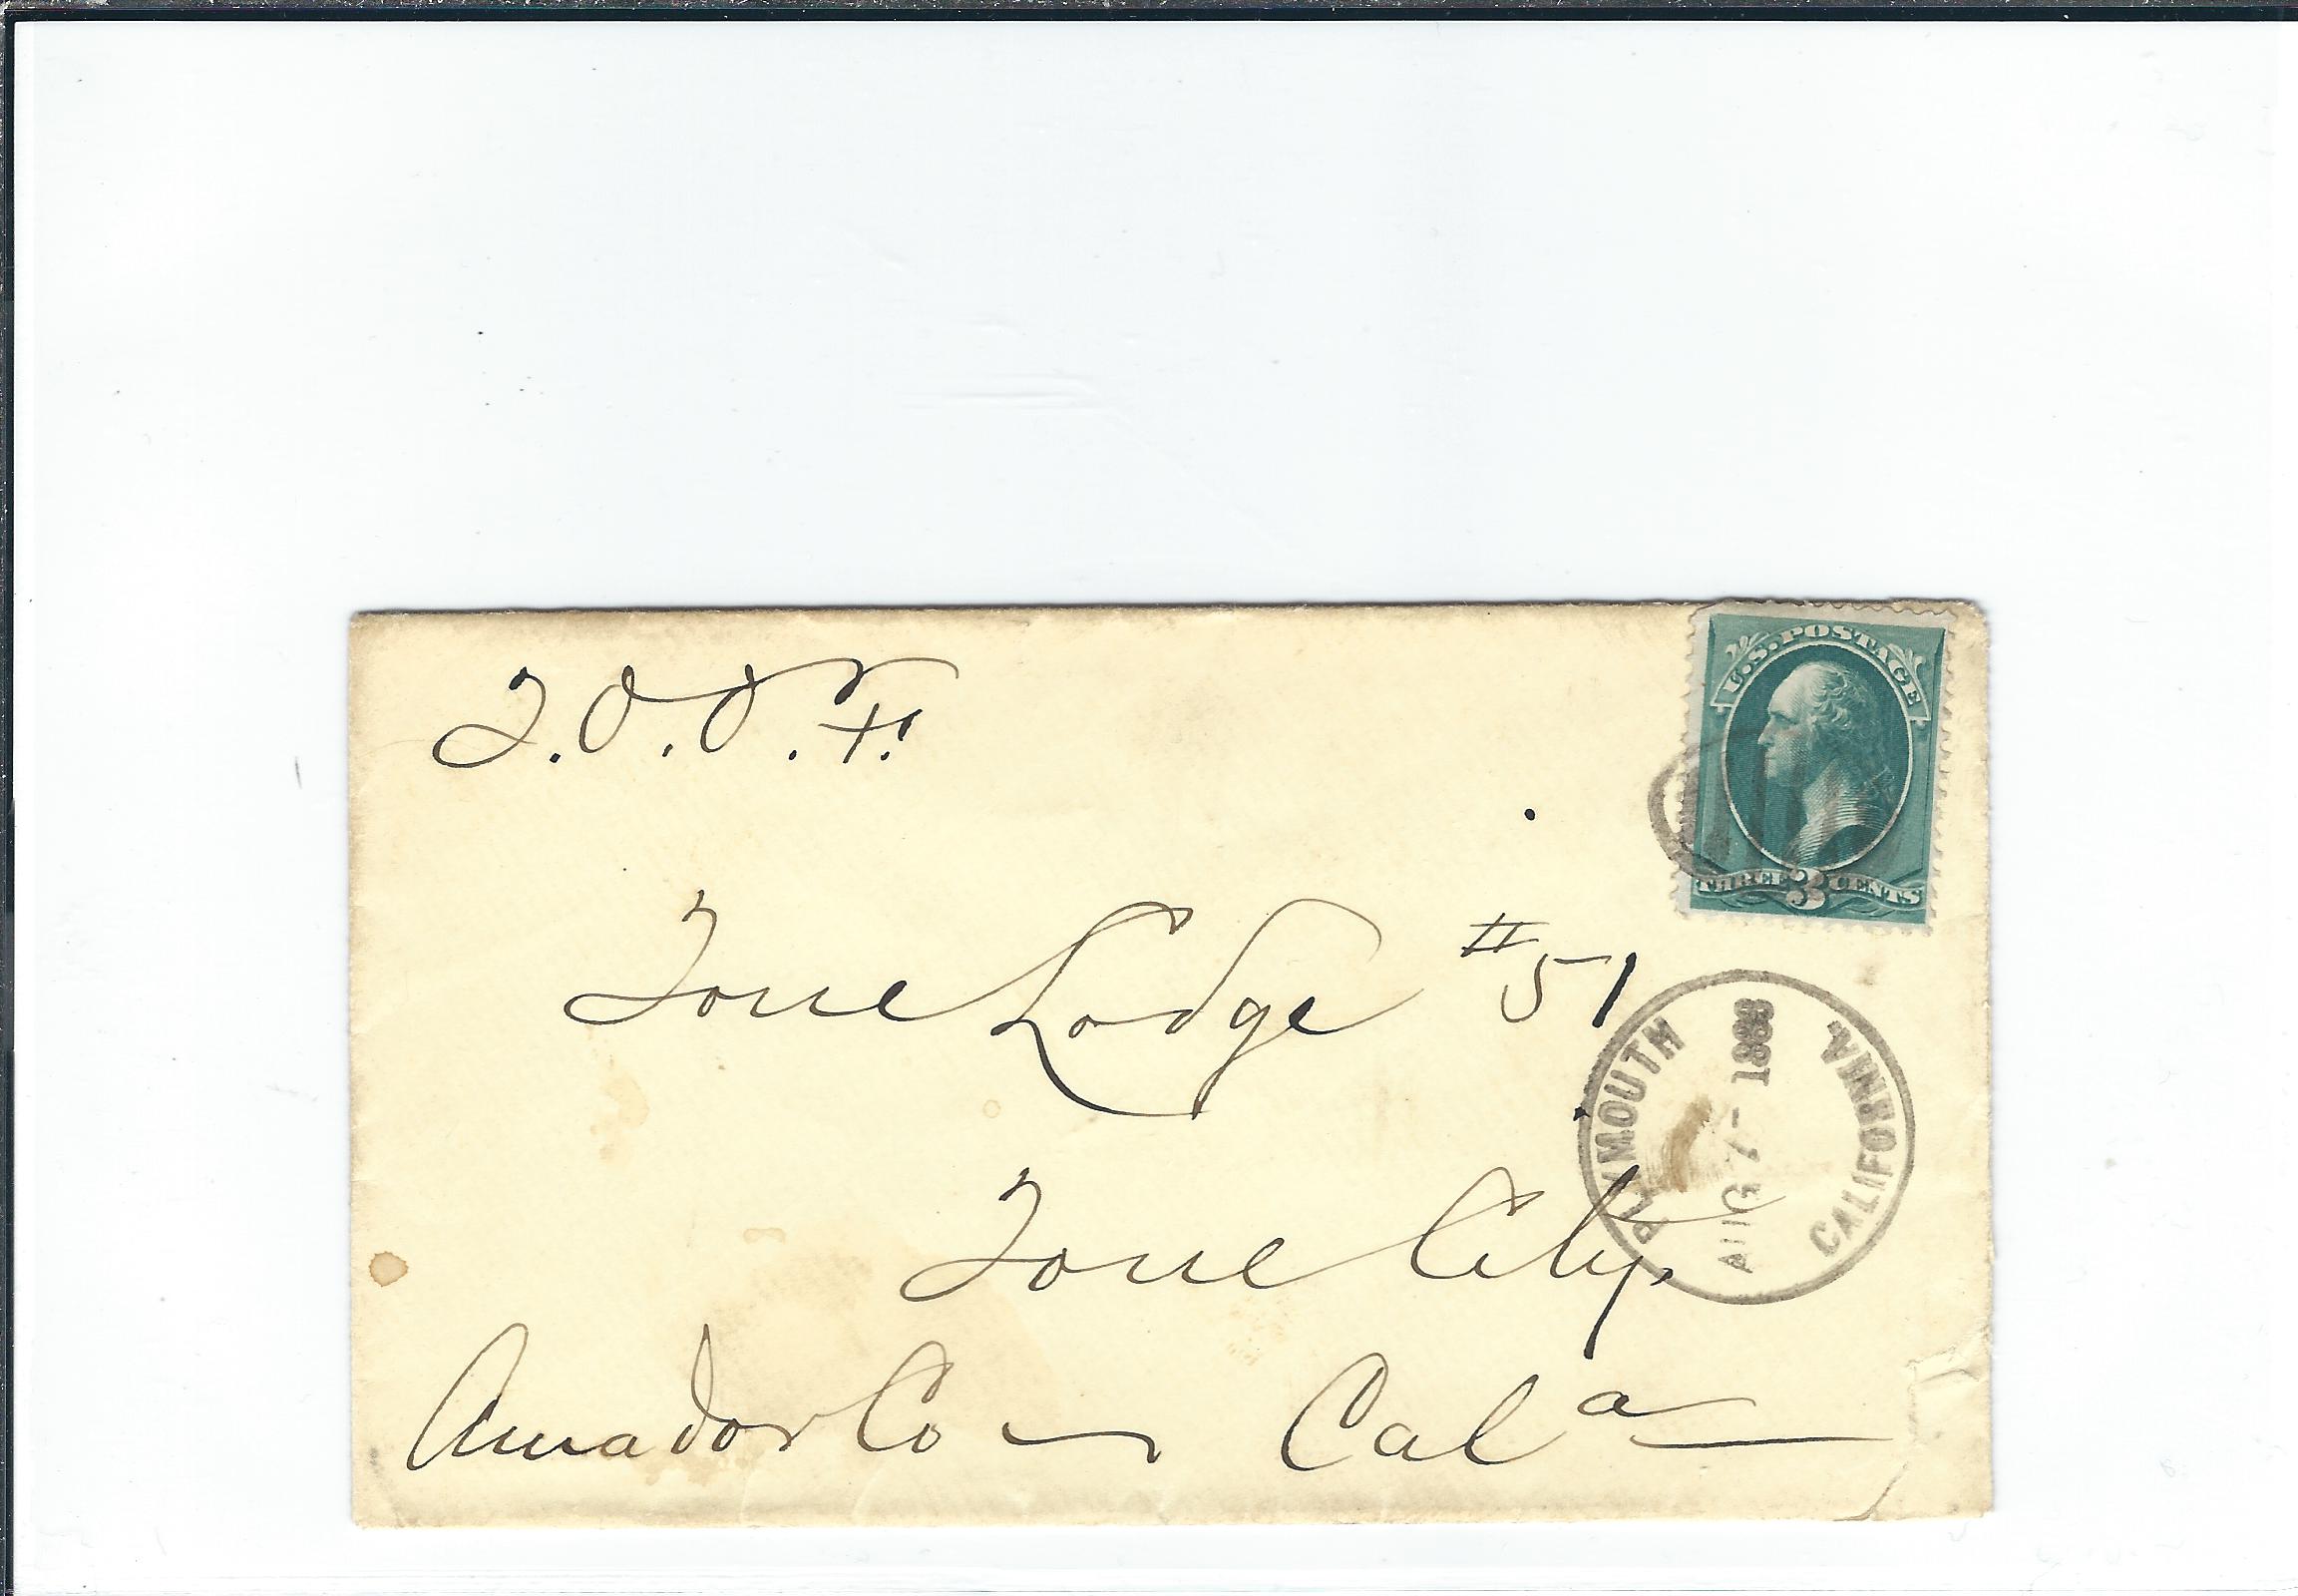 I.O.O.F.
U.S. POSTAGE
THREE 3 CENTS
Ione Lodge #51
PLYMOUTH CALIFORNIA.
AUG 7- 1883
Ione City,
Amador Co Cal a